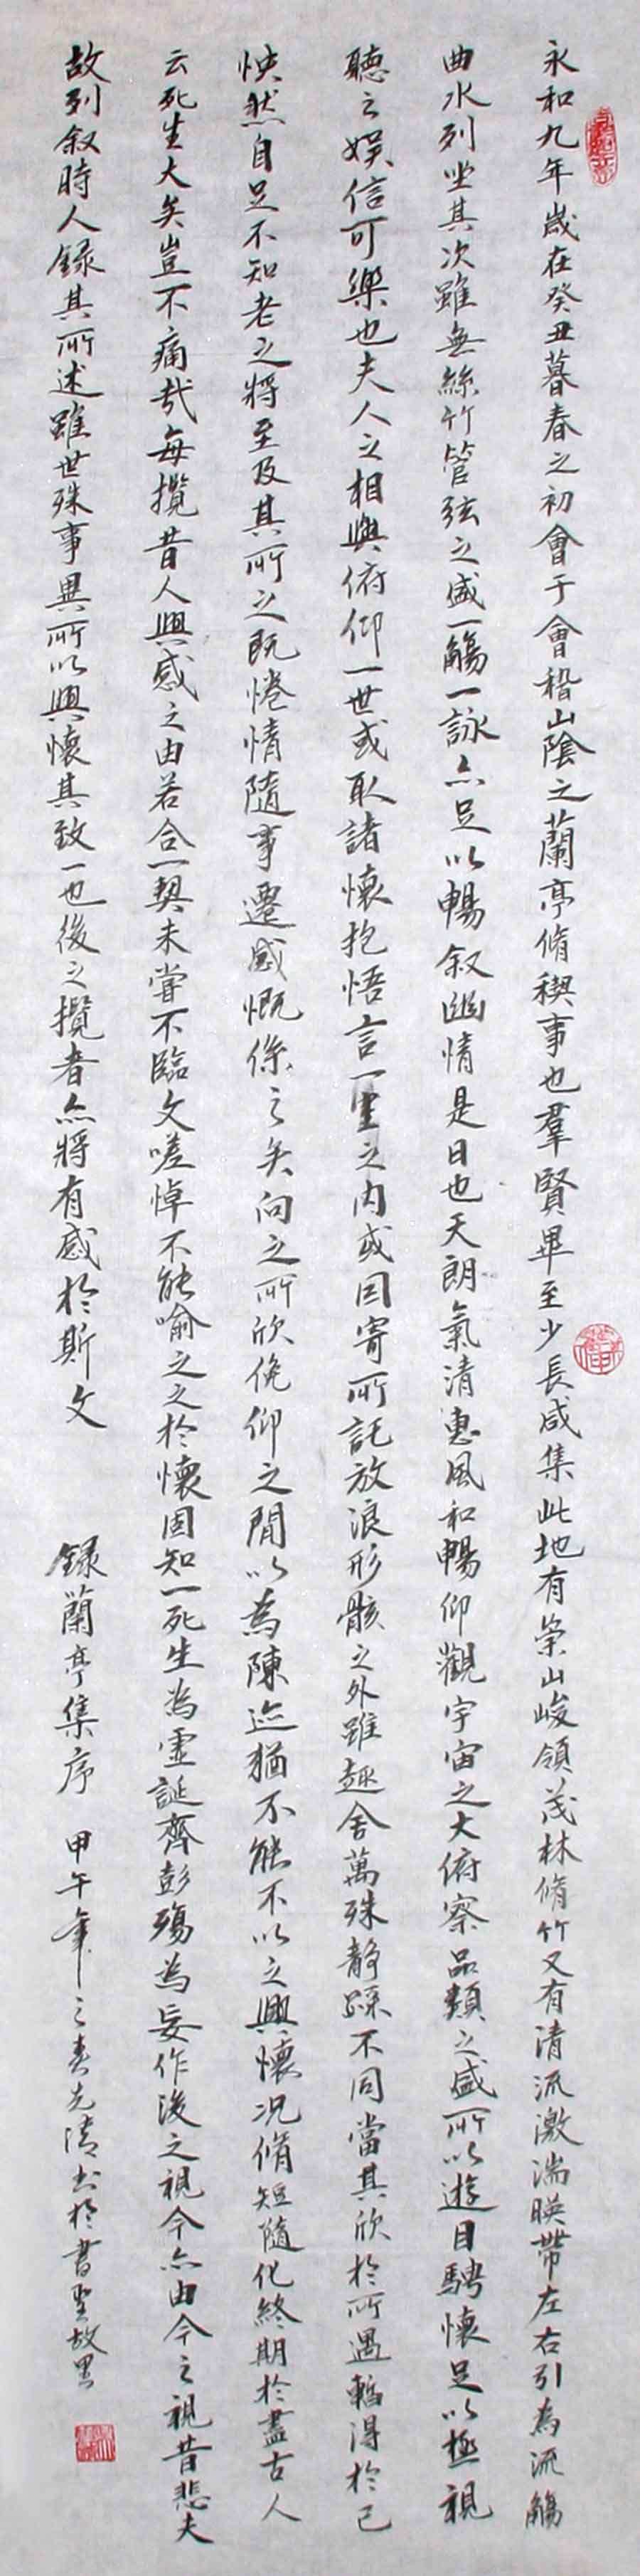 永和九年歲在癸丑暮春之初會于會稽山陰之蘭亭脩稧事也羣賢畢至少長咸集此地有崇山峻領茂林脩竹又有清流激湍暎帶左右引為流觴
曲水列坐其次雖無絲竹管弦之盛一觴一詠亦足以暢叙幽情是日也天朗氣清惠風和暢仰觀宇宙之大俯察品類之盛所以遊目騁懷足以極視
聽之娛信可樂也夫人之相與俯仰一世或取諸懷抱悟言一室之內或因寄所託放浪形骸之外雖趣舍萬殊靜躁不同當其欣於所遇暫得於己
怏然自足不知老之將至及其所之既惓情隨事遷感慨係之矣向之所欣俛仰之間以為陳迹猶不能不以之興懷況脩短隨化終期於盡古人
云死生大矣豈不痛哉每攬昔人興感之由若合一契未甞不臨文嗟悼不能喻之之於懷固知一死生為虛誕齊彭殤為妄作後之視今亦由今之視昔悲夫
故列叙時人錄其所述雖世殊事異所以興懷其致一也後之攬者亦將有感於斯文 錄蘭亭集序 甲午年之春元清書於書聖故里